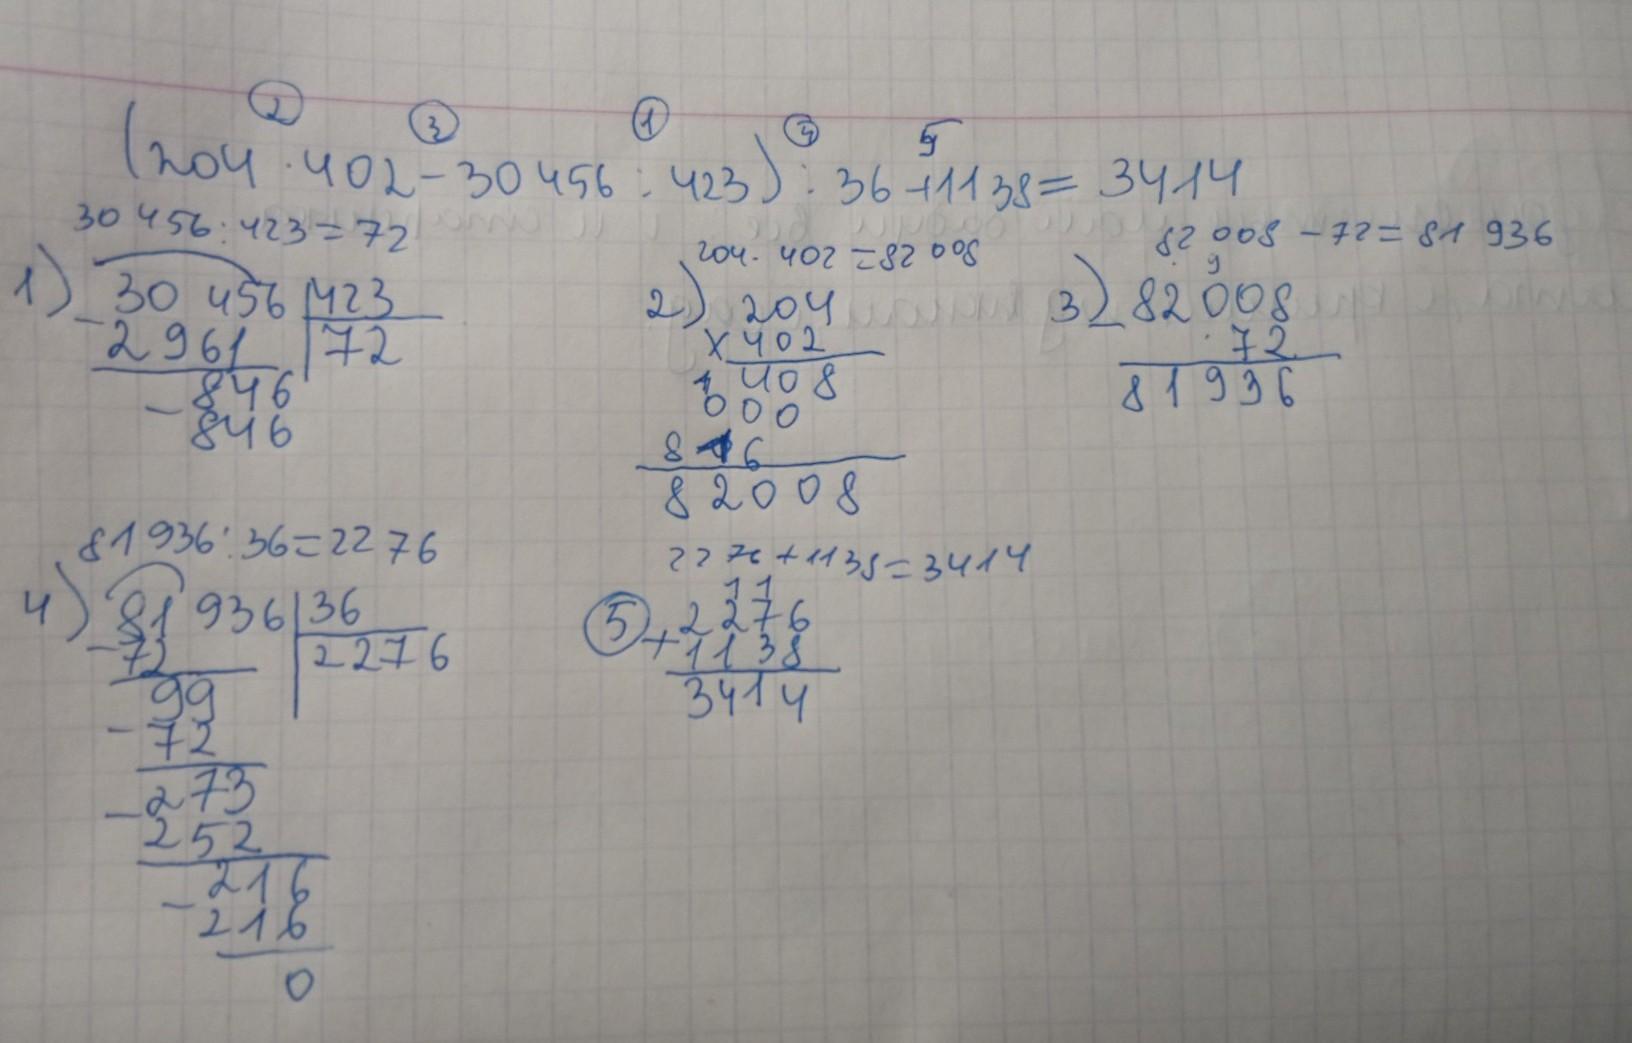 ② ③ ① ④ 5
(204 · 402 - 30 456 : 423) : 36 + 1138 = 3414
30 456 : 423 = 72
1) 30 456 | 423
- 2961 | 72
- 846
846
204 · 402 = 82 008
2) 204
x 402
1 408
000
8 16
82008
82 008 - 72 = 81 936
9
3) - 82008
72
81936
81 936 : 36 = 2276
4) 81 936 | 36
- 72 | 2276
99
- 72
- 273
252
- 216
216
0
2276 + 1138 = 3414
11
⑤ + 2276
1138
3414